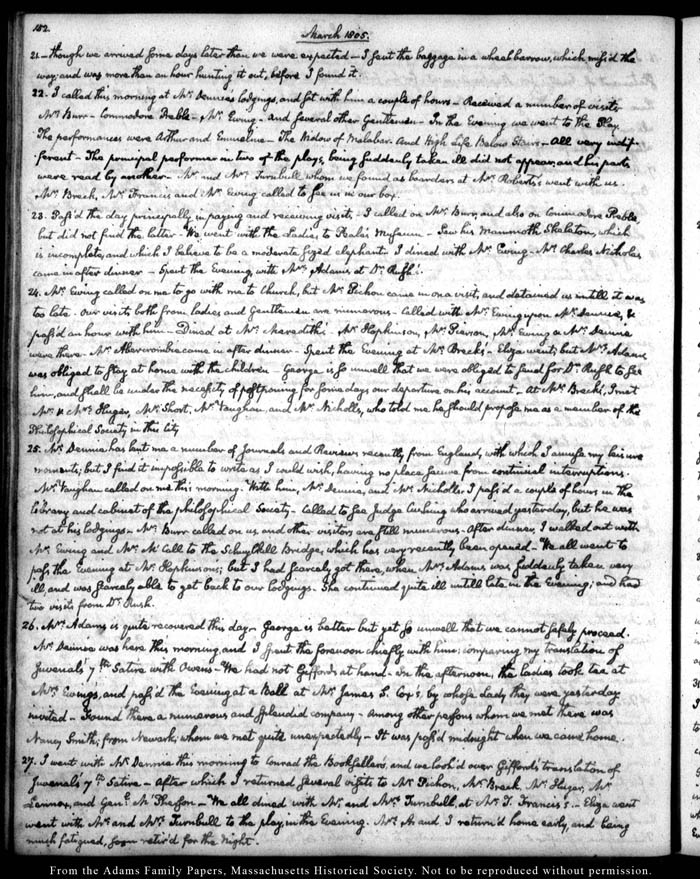 182.
March 1805.
21 – though we arrived some days later than we were expected – I sent the baggage in a wheel barrow, which miss'd the
way; and was more than an hour hunting it out, before I found it.
22. I called this morning at Mr. Dennie's lodgings, and sat with him a couple of hours – Received a number of visits
Mr. Burr – Commodore Preble – Mr. Ewing – and several other Gentlemen – In the Evening we went to the Play
The performances were Arthur and Emmeline – The Widow of Malabar. And High Life Below Stairs – All very indif-
ferent – The principal performer in two of the plays, being suddenly taken ill did not appear, and his parts
were read by another – Mr. and Mrs. Turnbull whom we found as boarders at Mrs. Roberts's went with us.
Mr. Breck, Mr. Francis and Mr. Ewing called to see us in our box.
23. Pass'd the day principally in paying and receiving visits – I called on Mr. Burr, and also on Commodore Preble
but did not find the latter – We went with the Ladies to Peale's Museum – Saw his Mammoth Skeleton, which
is incomplete, and which I believe to be a moderate sized elephant. I dined with Mr. Ewing – Mr. Charles Nicholas
came in after dinner – Spent the Evening with Mrs. Adams at Dr. Rush's.
24. Mr. Ewing called on me to go with me to Church, but Mr. Pichon came in on a visit, and detained us untill it was
too late – Our visits both from ladies and Gentlemen are numerous – Called with Mr. Ewing upon Mr. Dennie, &
pass'd an hour with him – Dined at Mr. Meredith's. Mr. Hopkinson, Mr. Ewing & Mr. Dennie
were there. Mr. Abercrombie came in after dinner – Spent the Evening at Mr. Breck's – Eliza went; but Mrs. Adams
was obliged to stay at home with the children – George is so unwell that we were obliged to send for Dr. Rush to see
him, and shall be under the necessity of postponing for some days our departure on his account. At Mr. Breck's, I met
Mr. & Mrs. Huger, Mr. Short, Mr. Vaughan, and Mr. Nicholls, who told me he should propose me as a member of the
Philosophical Society in this City
25. Mr. Dennie has lent me a number of Journals and Reviews recently from England, with which I amuse my leisure
moments; but I find it impossible to write as I could wish, having no place secure from continual interruptions.
Mr. Vaughan called on me this morning. With him, Mr. Dennie, and Mr. Nicholls I pass'd a couple of hours in the
library and cabinet of the philosophical Society – Called to see Judge Cushing who arrived yesterday, but he was
not at his lodgings – Mr. Burr called on us, and other visitors are still numerous – After dinner I walked out with
Mr. Ewing and Mr. McCall to the Schuylkill Bridge, which has very recently been opened – We all went to
pass the Evening at Mr. Hopkinson's; but I had scarcely got there, when Mrs. Adams was suddenly taken very
ill, and was scarcely able to get back to our lodgings. She continued quite ill untill late in the evening; and had
two visits from Dr. Rush.
26. Mrs. Adams is quite recovered this day – George is better but yet so unwell that we cannot safely proceed.
Mr. Dennie was here this morning, and I spent the forenoon chiefly with him; comparing my translation of
Juvenal's 7th. Satire with Owen's – We had not Gifford's at hand – In the afternoon, the ladies took tea at
Mrs. Ewing's, and pass'd the Evening at a Ball at Mr. James S. Cox's; by whose lady they were yesterday
invited – Found there a numerous and splendid company – Among other persons whom we met there was
Nancy Smith, from Newark, whom we met quite unexpectedly – It was pass'd midnight when we came home.
27. I went with Mr. Dennie this morning to Conrad the Bookseller's, and we look'd over Gifford's translation of
Juvenal's 7th. Satire – After which I returned several visits to Mr. Pichon, Mr. Breck, Mr. Huger, Mr.
Lennox, and Genl. McPherson – We all dined with Mr. and Mrs. Turnbull, at Mr. T. Francis's – Eliza went
went with Mr. and Mrs. Turnbull to the play, in the Evening. Mrs. A. and I return'd home early, and being
much fatigued, soon retir'd for the night.
From the Adams Family Papers, Massachusetts Historical Society. Not to be reproduced without permission.